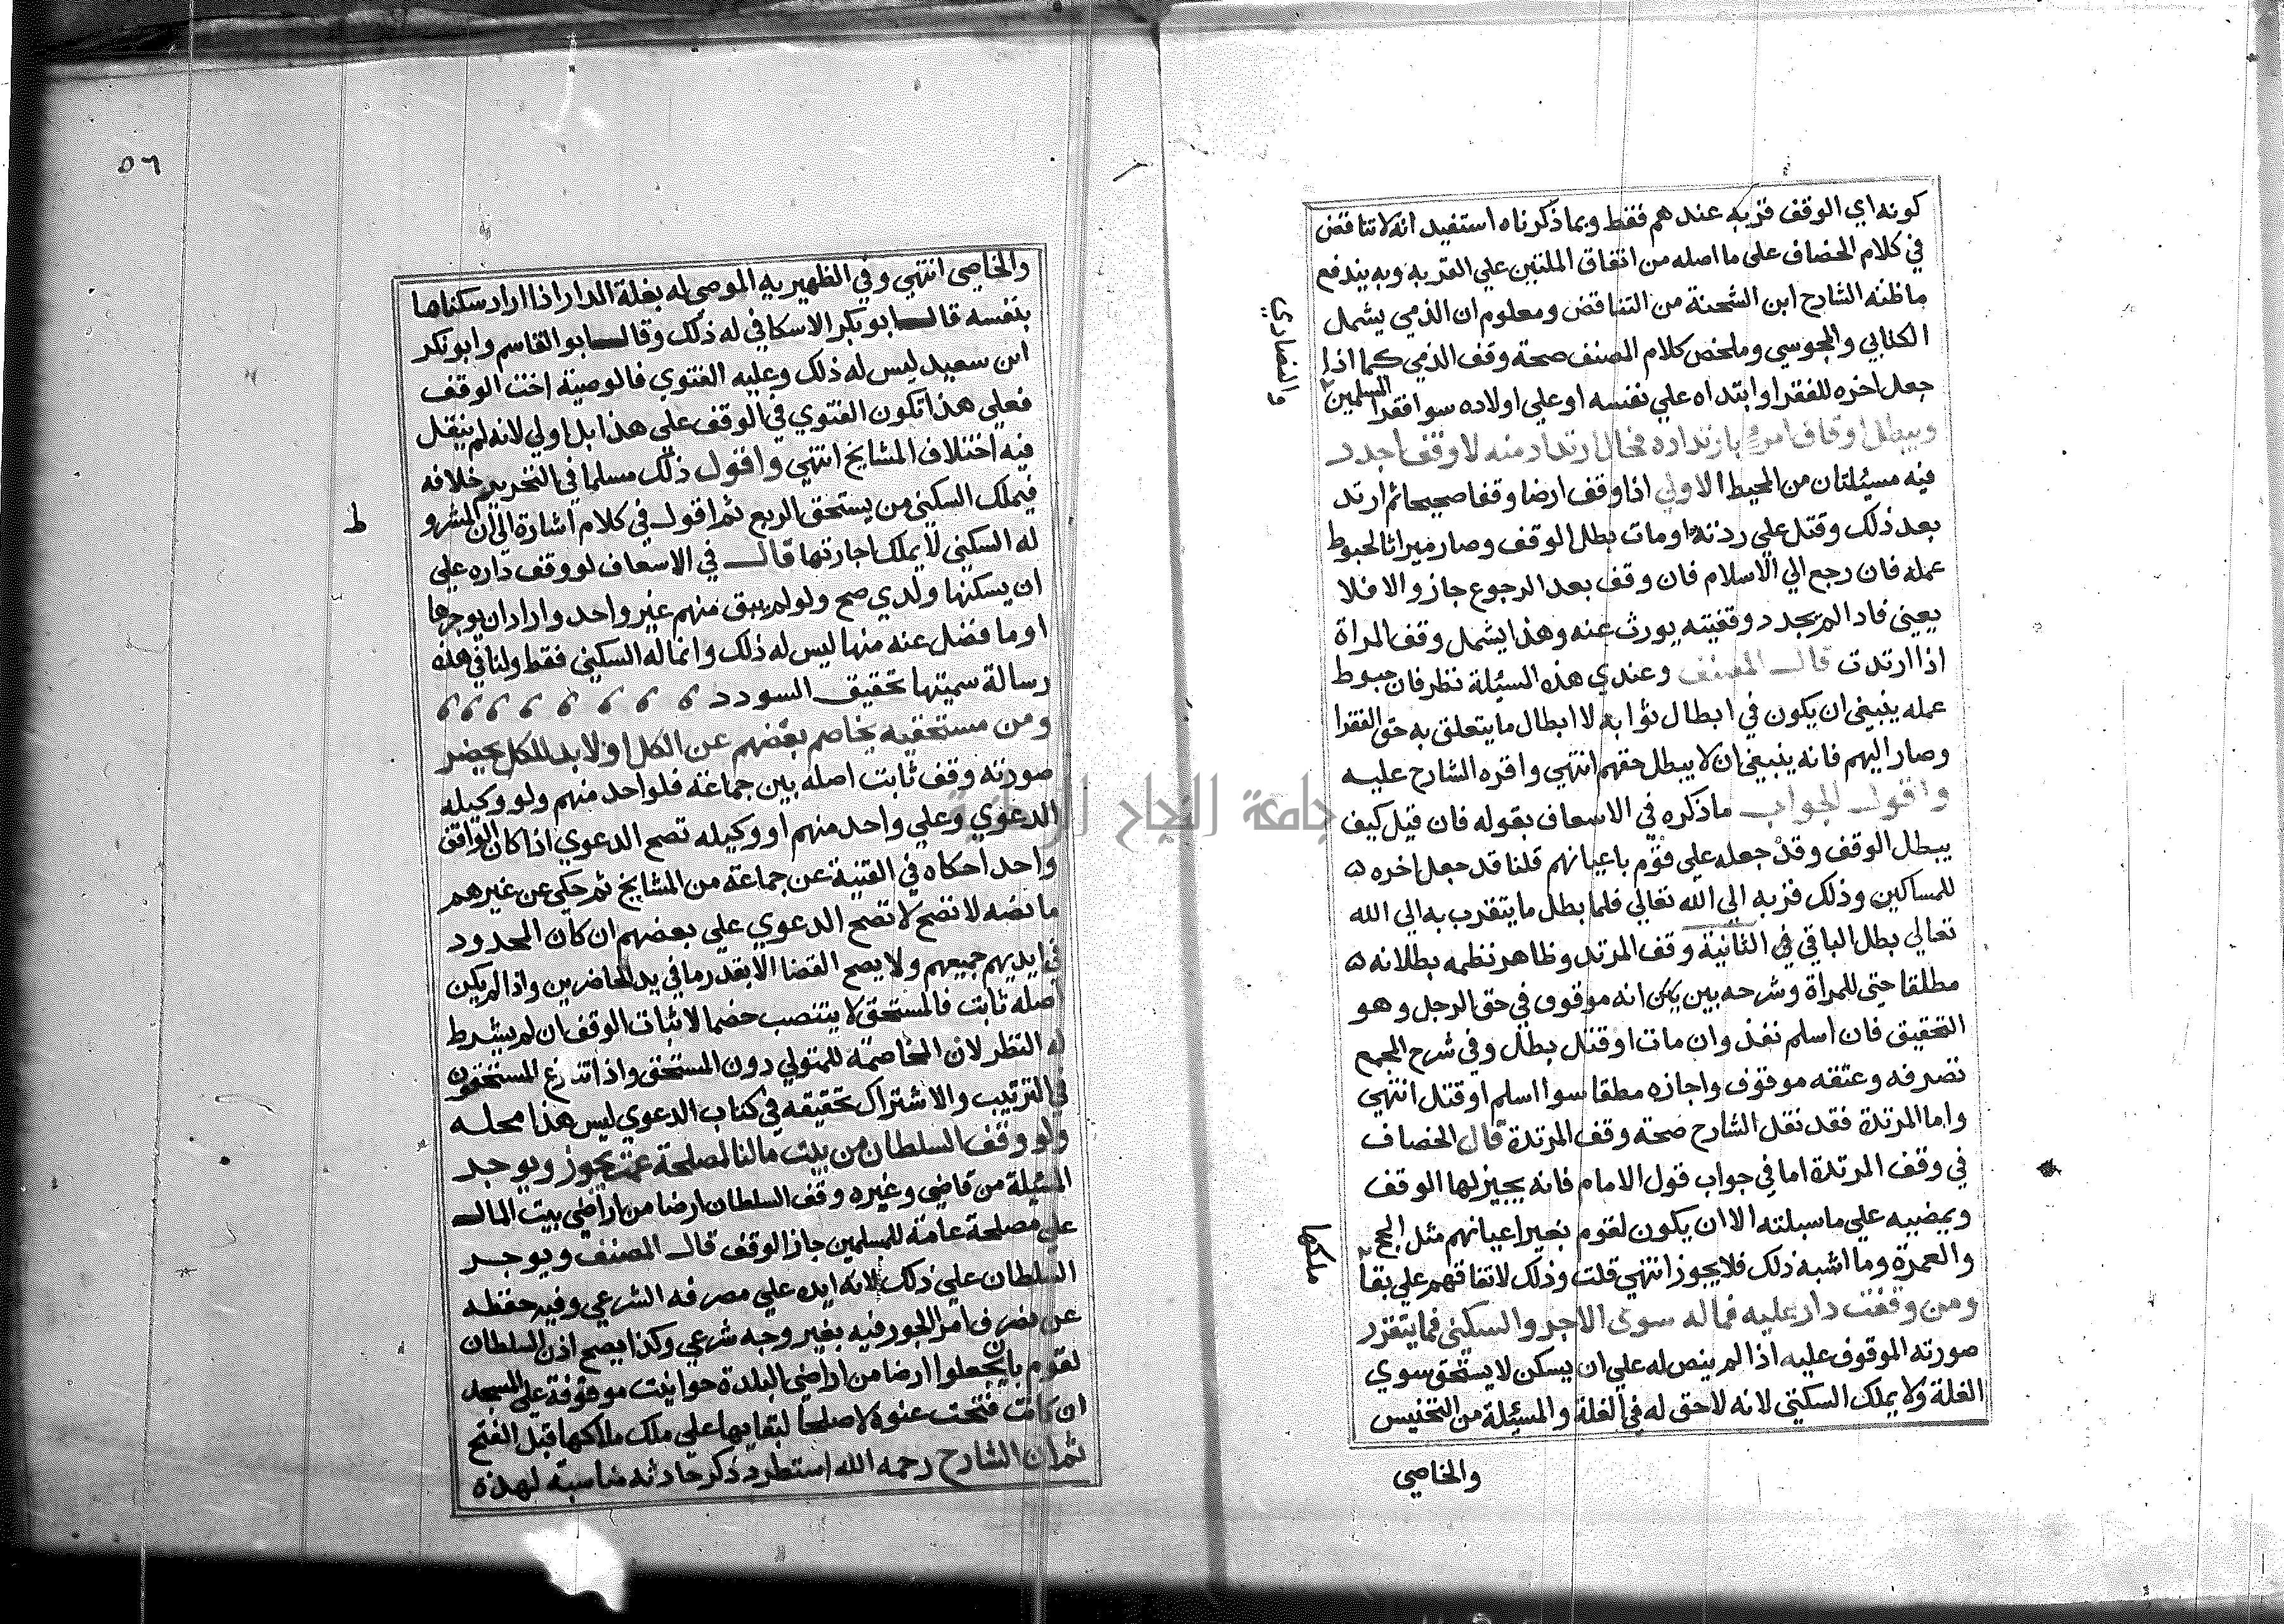 كونه اي الوقف قربه عندهم فقط وبما ذكرناه استفيد انه لا تناقض
في كلام الخصاف على ما اصله من اتفاق الملتين علي القربه وبه يندفع
ما ظنه الشارح ابن الشحنة من التناقض ومعلوم ان الذمي يشمل
الكتابي والمجوسي وملخص كلام المصنف صحة وقف الذمي كما اذا
جعل اخره للفقرا وابتداه علي نفسه او علي اولاده سوا فقرا المسلمين
والنصاري
ويبطل اوقاف امرء بارتداده فحال ارتداد منه لا وقف اجدد
فيه مسيئلتان من المحيط الاولي اذا وقف ارضا وقفا صحيحا ثم ارتد
بعد ذلك وقتل علي ردته او مات بطل الوقف وصار ميراثا لحبوط
عمله فان رجع الي الاسلام فان وقف بعد الرجوع جاز والا فلا
يعني فاذا لم يجدد وقفيته يورث عنه وهذا يشمل وقف المراة
اذا ارتدت قال المصنف وعندي هذه المسئلة نظر فان حبوط
عمله ينبغي ان يكون في ابطال ثوابه لا ابطال ما يتعلق به حق الفقرا
وصار اليهم فانه ينبغي ان لا يبطل حقهم انتهي واقره الشارح عليه
واقول الجواب ما ذكره في الاسعاف بقوله فان قيل كيف
يبطل الوقف وقد جعله علي قوم باعيانهم قلنا قد جعل اخره
للمساكين وذلك قربه الي الله تعالي فلما بطل ما يتقرب به الي الله
تعالي بطل الباقي في الثانية وقف المرتد وظاهر نظمه بطلانه
مطلقا حتي للمراة وشرحه بين بان انه موقوف في حق الرجل وهو
التحقيق فان اسلم نفذ وان مات او قتل بطل وفي شرح المجمع
تصرفه وعتقه موقوف واجازه مطقا سوا اسلم او قتل انتهي
واما المرتدة فقد نقل الشارح صحة وقف المرتدة قال الخصاف
في وقف المرتدة اما في جواب قول الامام فانه يجيز لها الوقف
ويمضيه علي ما سبلته الا ان يكون لقوم بغير اعيانهم مثل الحج
والعمرة وما اشبه ذلك فلا يجوز انتهي قلت وذلك لاتفاقهم علي بقا
ملكها
ومن وقفت دار عليه فما له سوى الاجر والسكني فما يتقرر
صورته الموقوف عليه اذا لم ينص له علي ان يسكن لا يستحق سوي
الغلة ولا يملك السكني لانه لا حق له في الغلة والمسيئلة من التجنيس
والخاصي
٥٦
والخاصي انتهي وفي الظهيريه الموصي له بغلة الدار اذا اراد سكناها
بنفسه قال ابو بكر الاسكافي له ذلك وقال ابو القاسم وابو بكر
ابن سعيد ليس له ذلك وعليه الفتوي فالوصية اخت الوقف
فعلي هذا تكون الفتوي في الوقف علي هذا بل اولي لانه لم ينقل
فيه اختلاف المشايخ انتهي واقول ذلك مسلما في التحرير خلافه
فيملك السكني من يستحق الريع ثم اقول في كلام اشارة الي ان المشرو
ط
له السكني لا يملك اجارتها قال في الاسعاف لو وقف داره علي
ان يسكنها ولدي صح ولو لم يبق منهم غير واحد واراد ان يوجرها
او ما فضل عنه منها ليس له ذلك وانما له السكني فقط ولنا في هذه
رسالة سميتها تحقيق السودد
ومن مستحقيه يخاصم بعضهم عن الكل او لا بد للكل يحضر
صورته وقف ثابت اصله بين جماعة فلواحد منهم ولو وكيله
الدعوي وعلي واحد منهم او وكيله تصح الدعوي اذا كان الواقف
واحدا حكاه في القنية عن جماعة من المشايخ ثم حكي عن غيرهم
ما نصه لا تصح لا تصح الدعوي علي بعضهم ان كان المحدود
في ايديهم جميعهم ولا يصح القضا الا بقدر ما في يد الحاضرين واذا لم يكن
اصله ثابت فالمستحق لا ينتصب خصما لاثبات الوقف ان لم يشرط
له النظر لان المخاصمة للمتولي دون المستحق واذا تنازع المستحقون
في الترتيب والاشتراك تحقيقه في كتاب الدعوي ليس هذا محله
ولو وقف السلطان من بيت مالنا لمصلحة عمت يجوز ويوجر
المسئيلة من قاضي وغيره وقف السلطان ارضا من اراضي بيت المال
علي مصلحة عامة للمسلمين جاز الوقف قال المصنف ويوجر
السلطان علي ذلك لانه ابده علي مصرفه الشرعي وفيه حفظه
عن تصرف امر الجور فيه بغير وجه شرعي وكذا يصح اذن السلطان
لقوم بان يجعلوا ارضا من اراضي البلدة حوانيت موقوفة علي المسجد
ان كانت فتحت عنوة لا صلحا لبقايها علي ملك ملاكها قبل الفتح
ثم ان الشارح رحمه الله استطرد ذكر حادثه مناسبة لهذه
جامعة النجاح الوطنية